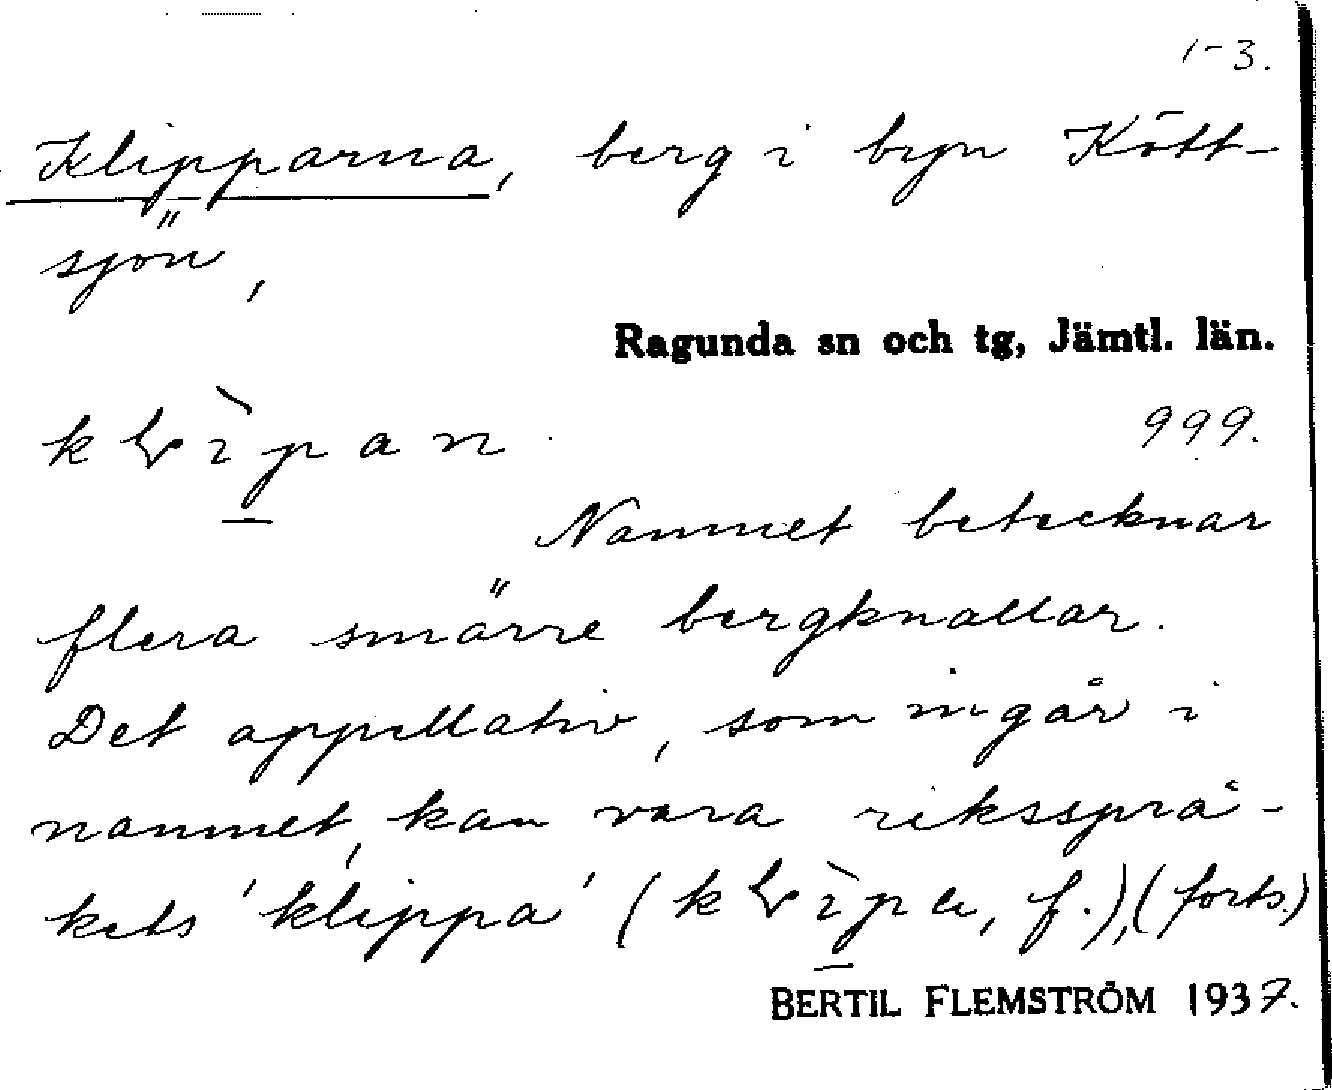 1-3.
Klipparna, berg i byn Kött-
sjön,
Ragunda sn och tg, Jämtl. län.
kɬìp̲an 999.
Namnet betecknar
flera smärre bergknallar.
Det appellativ, som ingår i
namnet, kan vara rikssprå-
kets 'klippa' (kɬìp̲a, f.), (forts.)
BERTIL FLEMSTRÖM 1937.